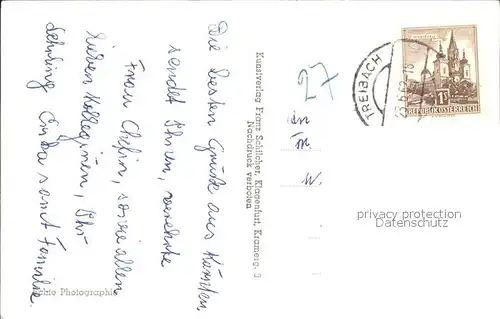 Die besten Grüße aus Kärnten
sendet Ihnen, verehrte
Frau Chefin, sowie allen
lieben Kolleginen, Ihr
Lehrling Gerda samt Familie.
Echte Photographie
Kunstverlag Franz Schilcher, Klagenfurt, Kramerg. 3
Nachdruck verboten
27
An
Fr.
W.
TREIBACH
REPUBLIK ÖSTERREICH
privacy protection
DatenSchutz